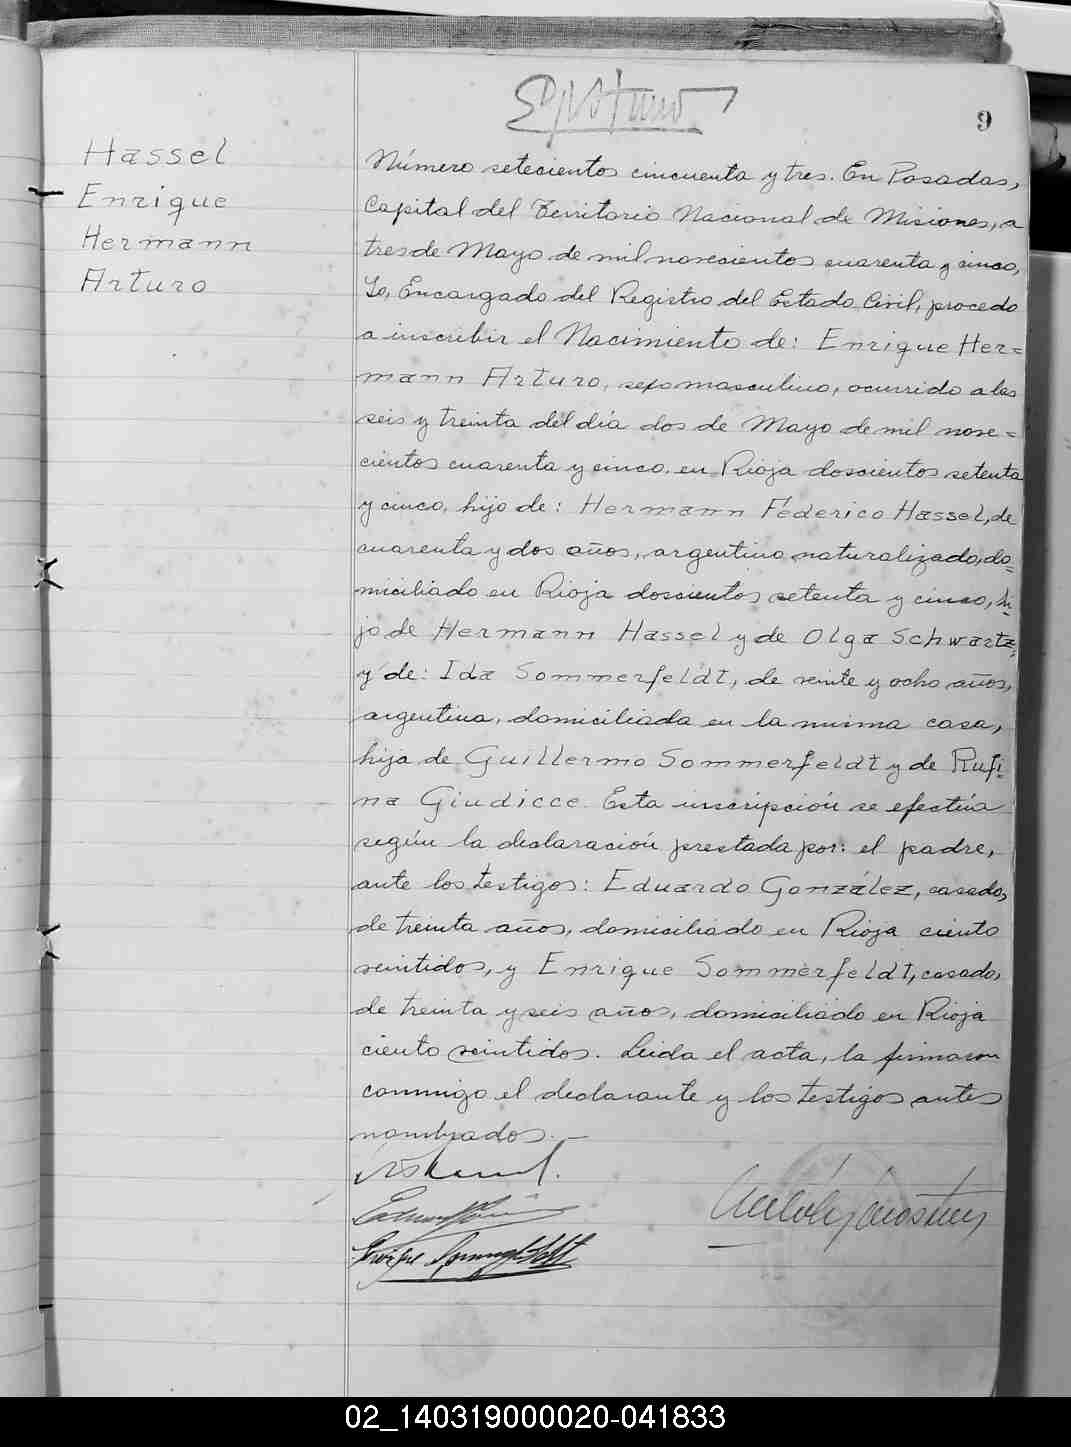 9
Hassel
Enrique
Hermann
Arturo
Número setecientos cincuenta y tres. En Posadas,
Capital del Territorio Nacional de Misiones, a
tres de Mayo de mil novecientos cuarenta y cinco,
Yo, Encargado del Registro del Estado Civil, procedo
a inscribir el Nacimiento de: Enrique Her=
mann Arturo, sexo masculino, ocurrido a las
seis y treinta del día dos de Mayo de mil nove=
cientos cuarenta y cinco, en Rioja doscientos setenta
y cinco, hijo de: Hermann Féderico Hassel, de
cuarenta y dos años, argentino naturalizado, do=
miciliado en Rioja doscientos setenta y cinco, hi
jo de Hermann Hassel y de Olga Schwartz,
y de: Ida Sommerfeldt, de veinte y ocho años,
argentina, domiciliada en la misma casa,
hija de Guillermo Sommerfeldt y de Rufi-
na Giudicce. Esta inscripción se efectúa
según la declaración prestada por: el padre,
ante los testigos: Eduardo González, casado,
de treinta años, domiciliado en Rioja ciento
veintidos, y Enrique Sommerfeldt, casado,
de treinta y seis años, domiciliado en Rioja
ciento veintidos. Leida el acta, la firmaron
conmigo el declarante y los testigos antes
nombrados.—
Enrique Sommerfeldt
02_140319000020-041833